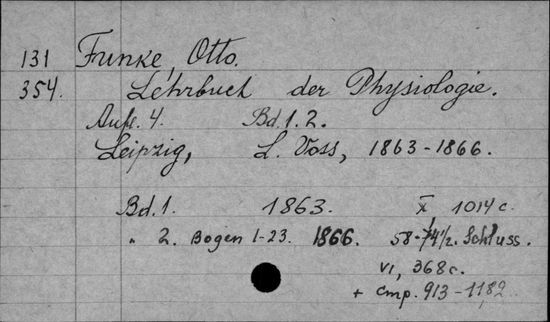 131 Funke, Otto.
354. Lehrbuch der Physiologie.
Aufl. 4. Bd. 1. 2.
Leipzig, L. Voss, 1863-1866.
Bd. 1. 1863. X, 1014 c.
" 2. Bogen 1-23. 1866. 58-74 1/2. Schluss.
VI, 368 c.
+ cmp. 913-1182